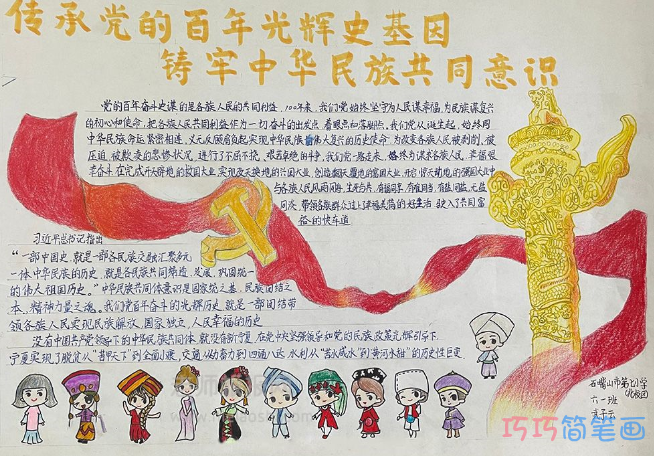 传承党的百年光辉史基因
铸牢中华民族共同意识
党的百年奋斗史谋的是各族人民的共同利益，100年来，我们党始终坚守为人民谋幸福，为民族谋复兴
的初心和使命，把各族人民共同利益作为一切奋斗的出发点、着眼点和落脚点。我们党从诞生起，始终同
中华民族命运紧密相连，义无反顾肩负起实现中华民族伟大复兴的历史使命，为改变各族人民被剥削、被
压迫、被欺凌的悲惨状况，进行了不屈不挠、艰苦卓绝的斗争，我们党一路走来，始终为谋求各族人民
在完成开天辟地的救国大业，实现改天换地的兴国大业，创造翻天覆地的富国大业
与各族人民风雨同舟，生死与共，有福同享，有难同当，有盐同咸，无盐
同淡，带领各族群众过上幸福美满的好生活，驶入了共同富
裕的快车道
习近平总书记指出
“一部中国史，就是一部各民族交融汇聚多元
一体中华民族的历史，就是各民族共同缔造、发展、巩固统一
的伟大祖国历史。”中华民族共同体意识是国家统一之基，民族团结之
本，精神力量之魂。我们党百年奋斗的光辉历史，就是一部团结带
领各族人民实现民族解放、国家独立、人民幸福的历史
没有中国共产党领导下的中华民族共同体，就没有新宁夏，在党中央坚强领导和党的民族政策光辉引导下，
宁夏实现了脱贫从“苦甲天下”到全面小康，交通从羊肠小到四通八达，水利从“苦水咸水”到“黄河水甜”的历史性巨变
石嘴山市第七小学
六一班
巧巧简笔画